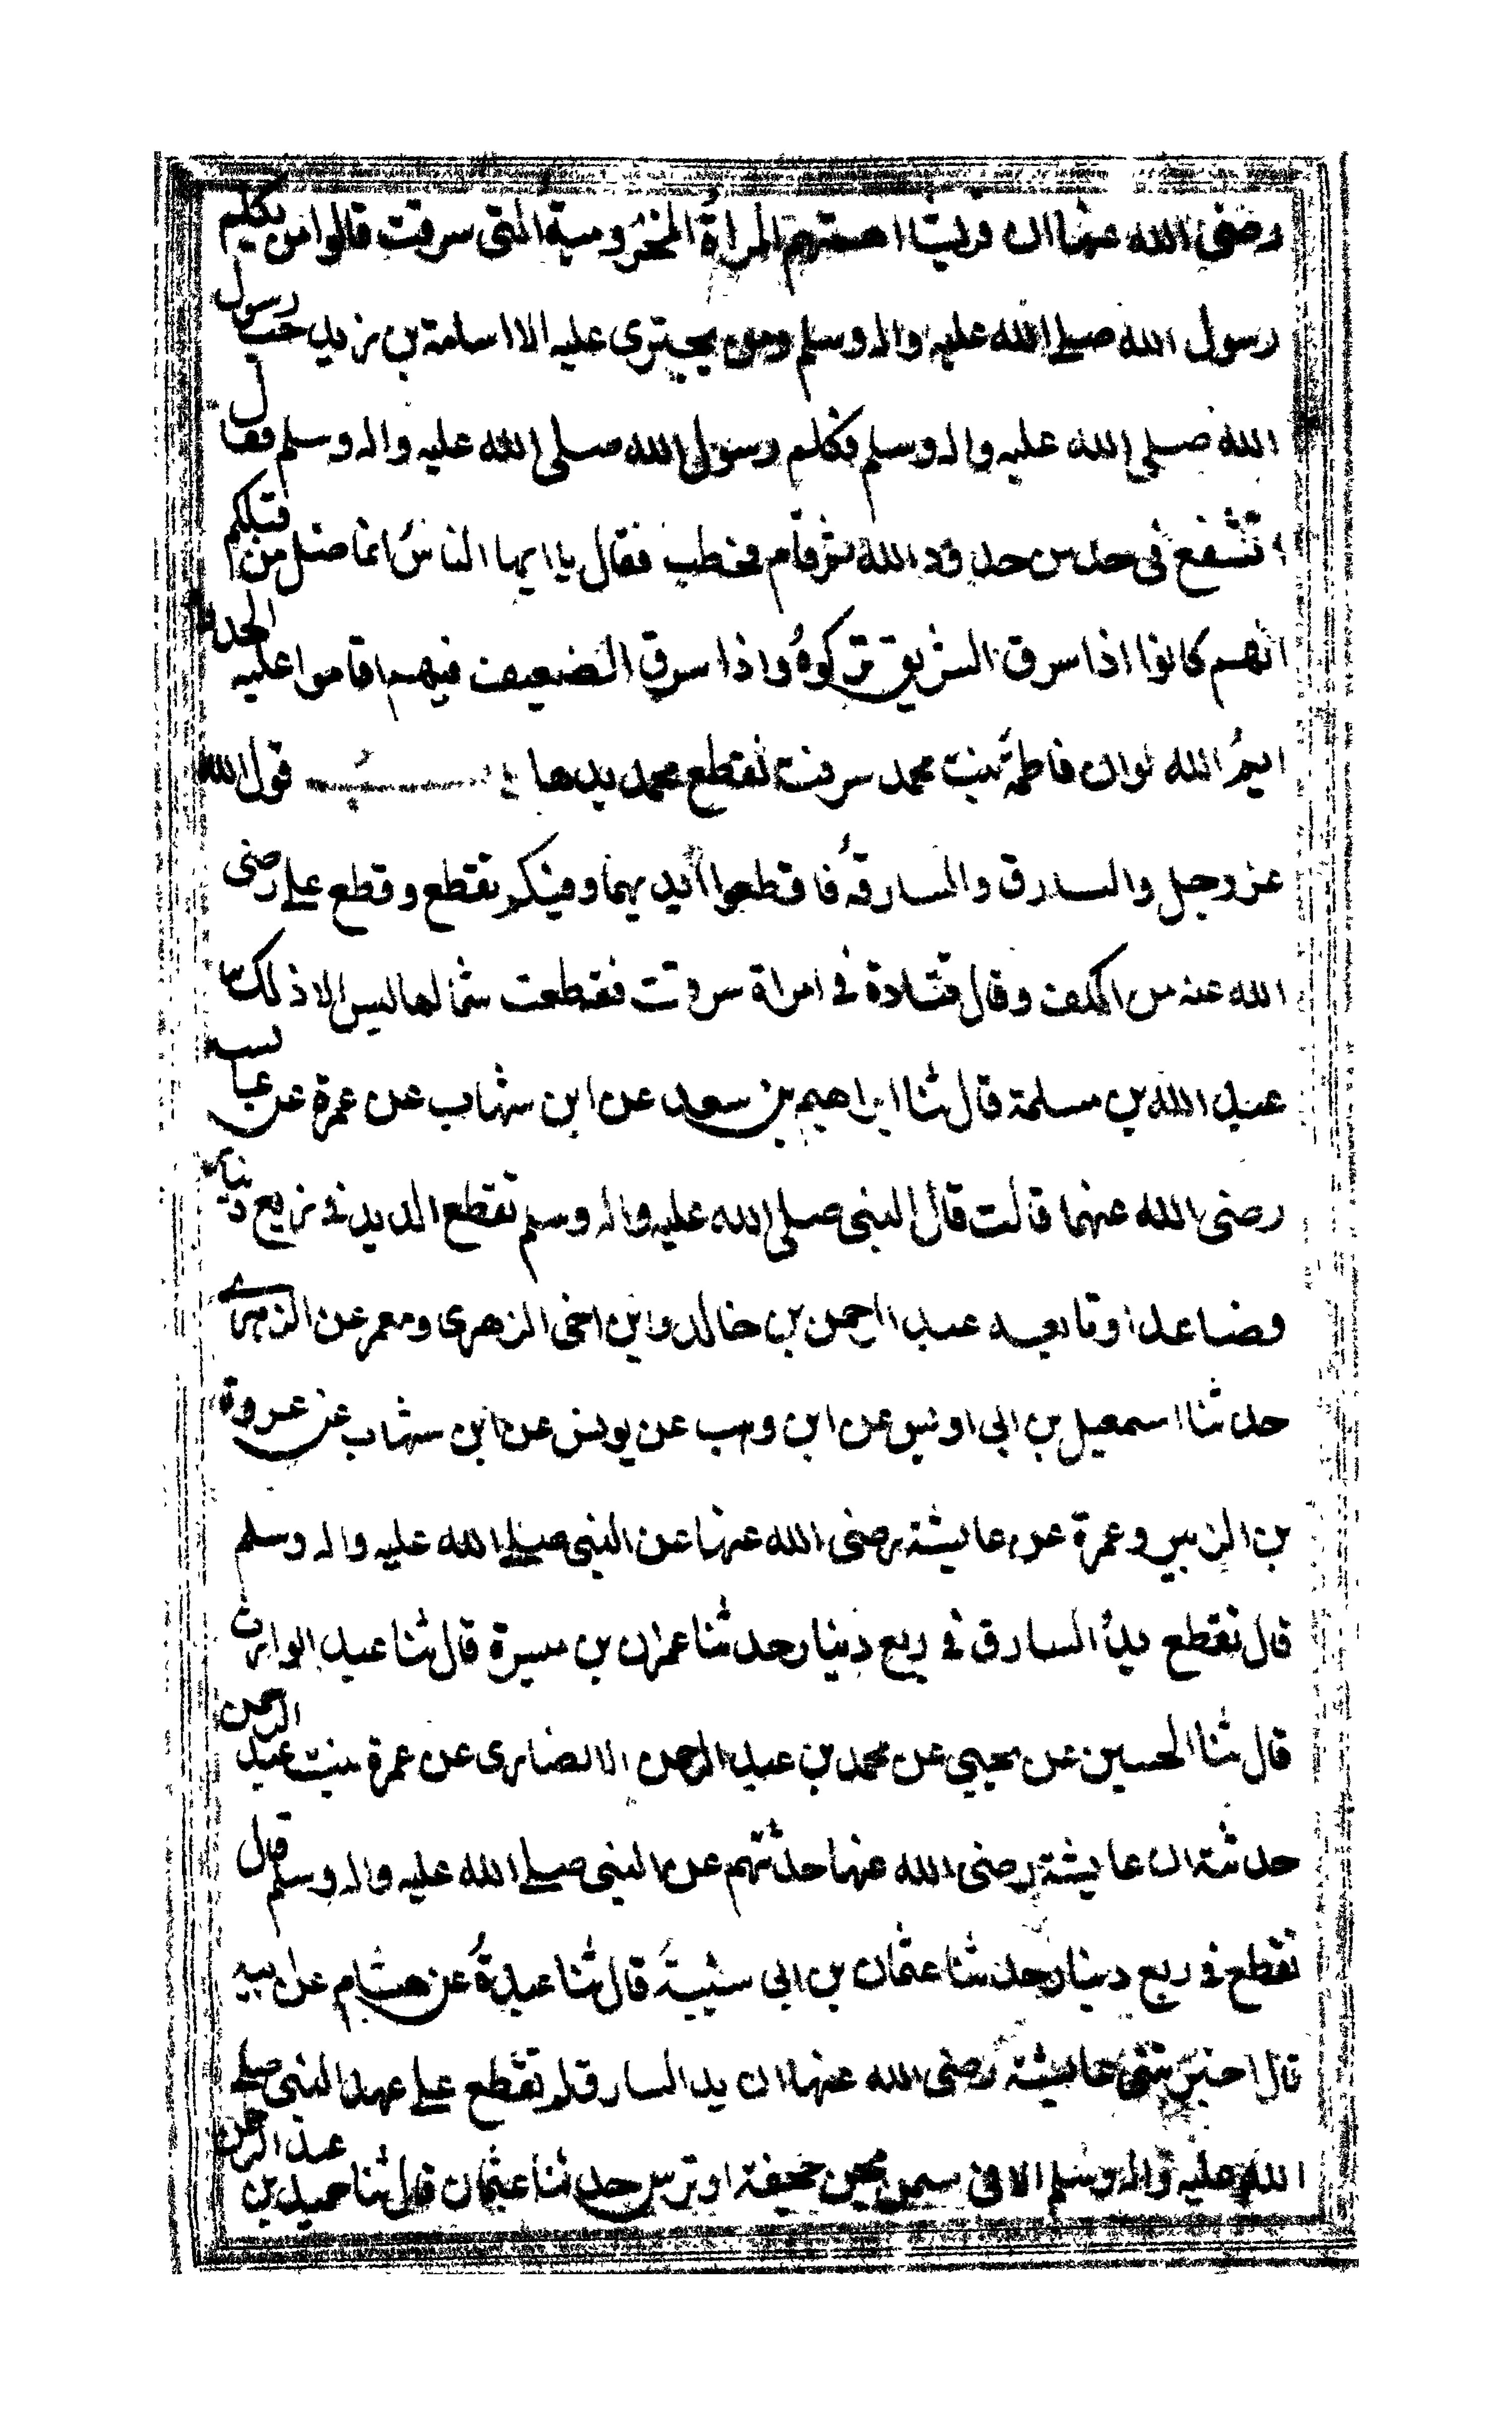 رضى الله عنها ان قريشا اهمتهم المراة المخزومية التى سرقت قالوا من يكلم
رسول الله صلى الله عليه واله وسلم ومن يجترى عليه الا اسامة بن زيد حب رسول
الله صلى الله عليه واله وسلم فكلم رسول الله صلى الله عليه واله وسلم فقال
اتشفع فى حد من حدود الله ثم قام فخطب فقال يا ايها الناس انما ضل من قبلكم
انهم كانوا اذا سرق الشريف تركوه واذا سرق الضعيف فيهم اقاموا عليه الحد و
ايم الله لو ان فاطمة بنت محمد سرقت لقطع محمد يدها باب قول الله
عز وجل والسارق والسارقة فاقطعوا ايديهما وفيكم تقطع وقطع على رضى
الله عنه من الكف وقال قتادة فى امراة سرقت فقطعت شمالها ليس الا ذلك حدثنا
عبد الله بن مسلمة قال ثنا ابراهيم بن سعد عن ابن شهاب عن عمرة عن عايشة
رضى الله عنها قالت قال النبى صلى الله عليه واله وسلم تقطع اليد فى ربع دينار
فصاعدا وتابعه عبد الرحمن بن خالد وابن اخى الزهرى ومعمر عن الزهرى
حدثنا اسمعيل بن ابى اويس عن ابن وهب عن يونس عن ابن شهاب عن عروة
بن الزبير وعمرة عن عايشة رضى الله عنها عن النبى صلى الله عليه واله وسلم
قال تقطع يد السارق فى ربع دينار حدثنا عمران بن ميسرة قال ثنا عبد الوارث
قال ثنا الحسين عن يحيى عن محمد بن عبد الرحمن الانصارى عن عمرة بنت عبد الرحمن
حدثته ان عايشة رضى الله عنها حدثتهم عن النبى صلى الله عليه واله وسلم قال
تقطع فى ربع دينار حدثنا عثمان بن ابى شيبة قال ثنا عبدة عن هشام عن ابيه
قال اخبرتنى عايشة رضى الله عنها ان يد السارق لم تقطع على عهد النبى صلى
الله عليه واله وسلم الا فى ثمن مجن حجفة او ترس حدثنا عثمان قال ثنا حميد بن عبد الرحمن